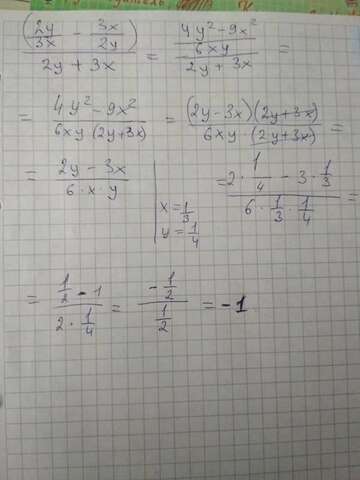 (2y/3x - 3x/2y)/(2y + 3x) = ((4y² - 9x²)/6xy)/(2y + 3x) =
= (4y² - 9x²)/(6xy (2y+3x)) = ((2y-3x)(2y+3x))/(6xy · (2y+3x)) =
= (2y - 3x)/(6 · x · y) | x = 1/3 y = 1/4 = (2 · 1/4 - 3 · 1/3)/(6 · 1/3 · 1/4) =
= (1/2 - 1)/(2 · 1/4) = (-1/2)/(1/2) = -1